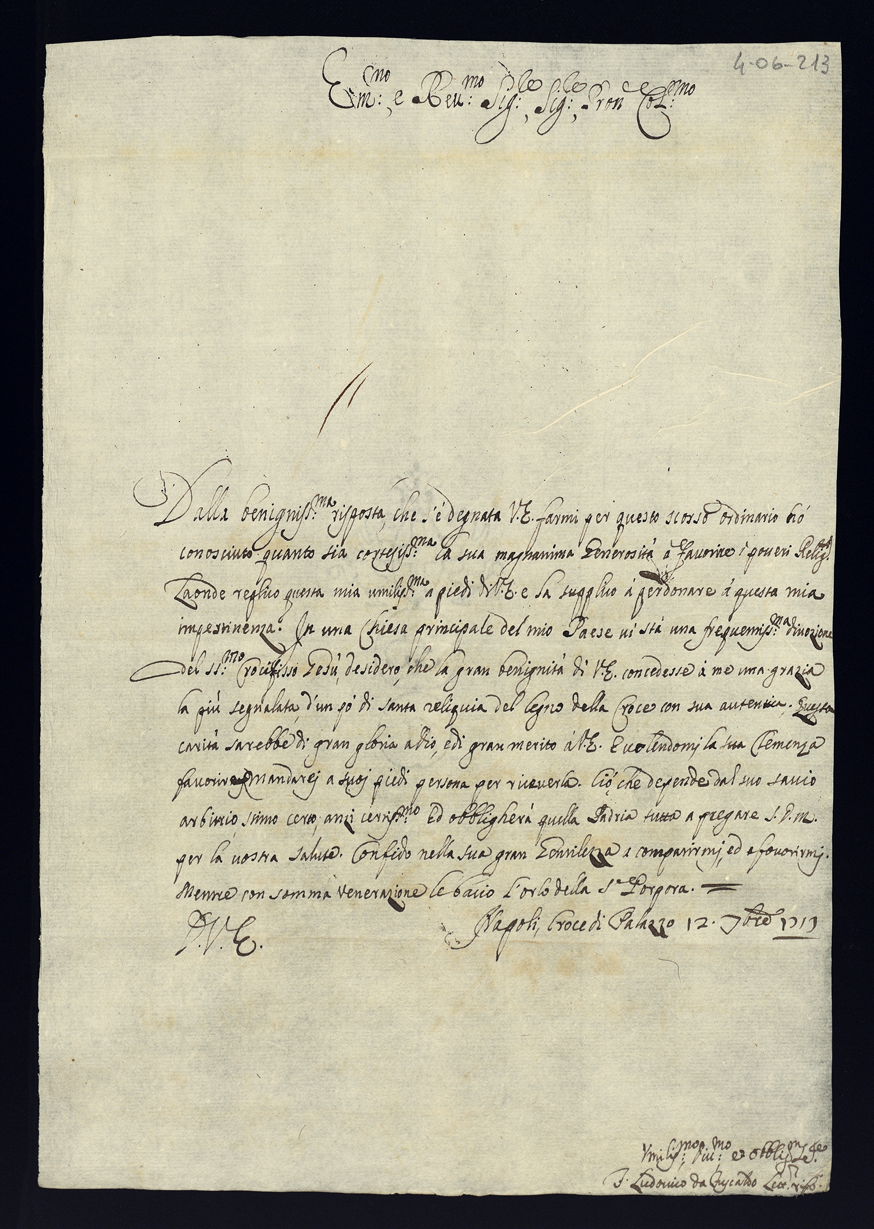 4-06-213
Em:no e Reu:mo Sig:le, Sig:le, Pron Col:mo
Dalla benigniss:ma risposta, che s'è degnata V.E. farmi per questo scorso ordinario hò
conosciuto quanto sia cortesiss:ma la sua magnanima Generosità a favorire i poveri Relig:
Laonde replico questa mia umiliss:ma a piedi di V.E. e la supplico á perdonare á questa mia
impertinenza. In una Chiesa principale del mio Paese vi stà una frequentiss:ma divozione
del SS:mo Crocifisso Gesù, desidero, che la gran benignità di V.E. concedesse à me una grazia
la più segnalata, d'un pó di santa reliquia del legno della Croce con sua autentica. Questa
carità sarebbe di gran gloria a Dio, e di gran merito à V.E. E volendomj la sua Clemenza
favorire mandarej a suoj piedi persona per riceverla. Ciò, che depende dal suo savio
arbitrio, stimo certo, anzi certiss:mo Ed obbligherà quella Padria tutta a pregare S.D.M.
per la vostra salute. Confido nella sua gran Gentilezza a compatirmj, ed a favorirmj.
Mentre con somma venerazione le bacio l'orlo della S. Porpora. =
D.V.E. Napoli, Croce di Palazzo 12. 7bre 1713
Vmiliss:mo Diu:mo et obblig:
F. Ludovico da